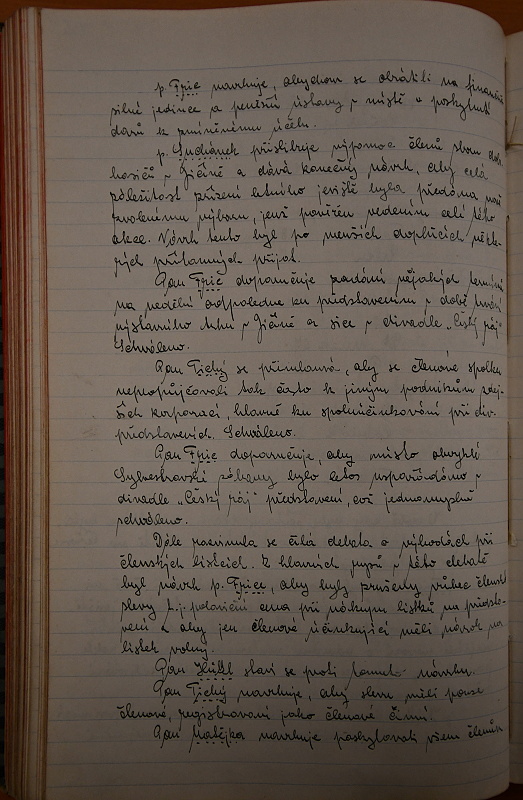 p. Fric navrhuje, abychom se obrátili na finančně
silné jedince a peněžní ústavy v místě o poskytnutí
darů k zmíněnému účelu.
p. Sucháněk přislibuje výpomoc členů sboru dob.
hasičů v Jičíně a dává konečný návrh, aby celá
záležitost zřízení letního jeviště byla předána nově
zvolenému výboru, jenž pověřen vedením celé této
akce. Návrh tento byl po menších doplňcích někte-
rých přítomných přijat.
Pan Fric doporučuje zadání nějakých termínů
na nedělní odpoledne ku představením v době trvání
výstavního ruchu v Jičíně a sice v divadle „Český ráj".
Schváleno.
Pan Tichý se přimlouvá, aby se členové spolku
nepropůjčovali tak často k jiným podnikům zdej-
ších korporací, hlavně ku spoluúčinkování při div.
představeních. Schváleno.
Pan Fric doporučuje, aby místo obvyklé
Sylvestrovské zábavy bylo letos uspořádáno v
divadle „Český ráj" představení, což jednomyslně
schváleno.
Dále rozvinula se čilá debata o výhodách při
členských lístcích. Z hlavních rysů v této debatě
byl návrh p. Frice, aby byly zrušeny vůbec členské
slevy t.j. poloviční cena při nákupu lístků na předsta-
vení a aby jen členové účinkující měli nárok na
lístek volný.
Pan Hüttl staví se proti tomuto návrhu.
Pan Tichý navrhuje, aby slevu měli pouze
členové, registrovaní jako členové činní.
Pan Matějka navrhuje poskytovati všem členům